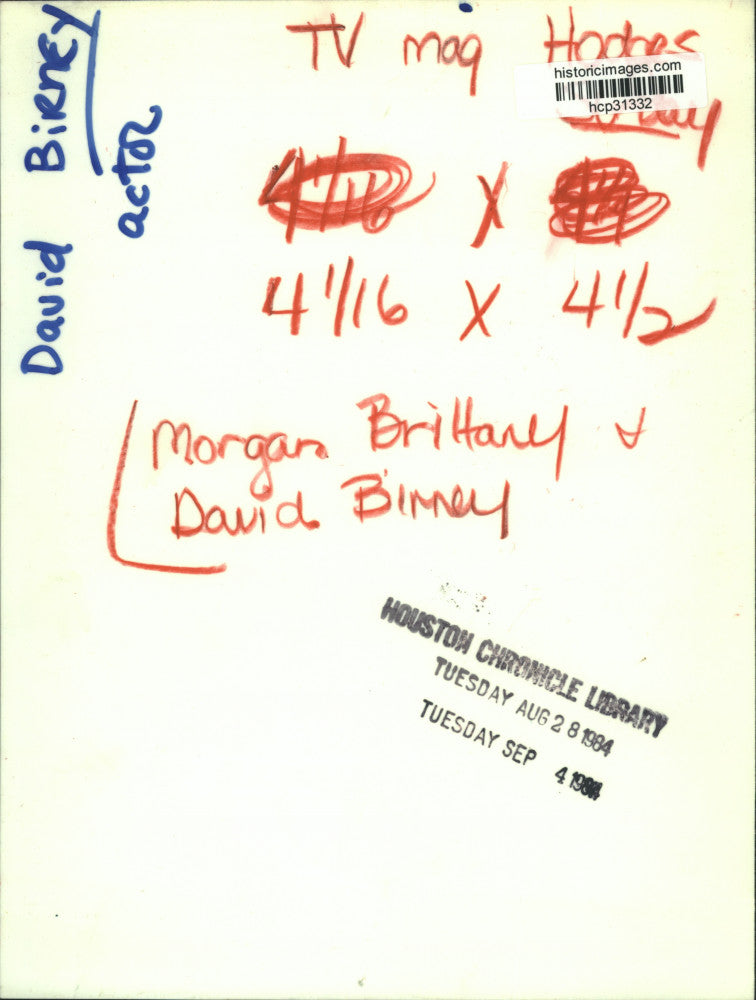 David Birney
actor
TV mag Hodges
historicimages.com
hcp31332
4 1/16 X
4 1/16 X 4 1/2
Morgan Brittany &
David Birney
HOUSTON CHRONICLE LIBRARY
TUESDAY AUG 28 1984
TUESDAY SEP 4 1984